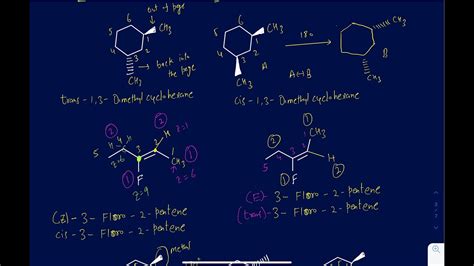 out of page
6
5
1
CH₃
4
2
3
back into the page
CH₃
trans-1,3-Dimethylcyclohexane
6
5
1
CH₃
4
2
3
CH₃
A
180
A↔B
CH₃
CH₃
B
cis-1,3-Dimethylcyclohexane
②
H H
5
4
Z=6
3
2
H
Z=1
①
F
Z=9
CH₃
①
Z=6
(Z)-3-Floro-2-pentene
cis-3-Floro-2-pentene
②
①
CH₃
1
5
4
3
2
H
②
F
①
(E)-3-Floro-2-pentene
(trans)-3-Floro-2-pentene
methyl
CH₃